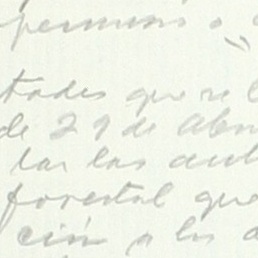 permisos o
tades que se l
de 29 de Abr
lar las aut
forestal que
ción a los d